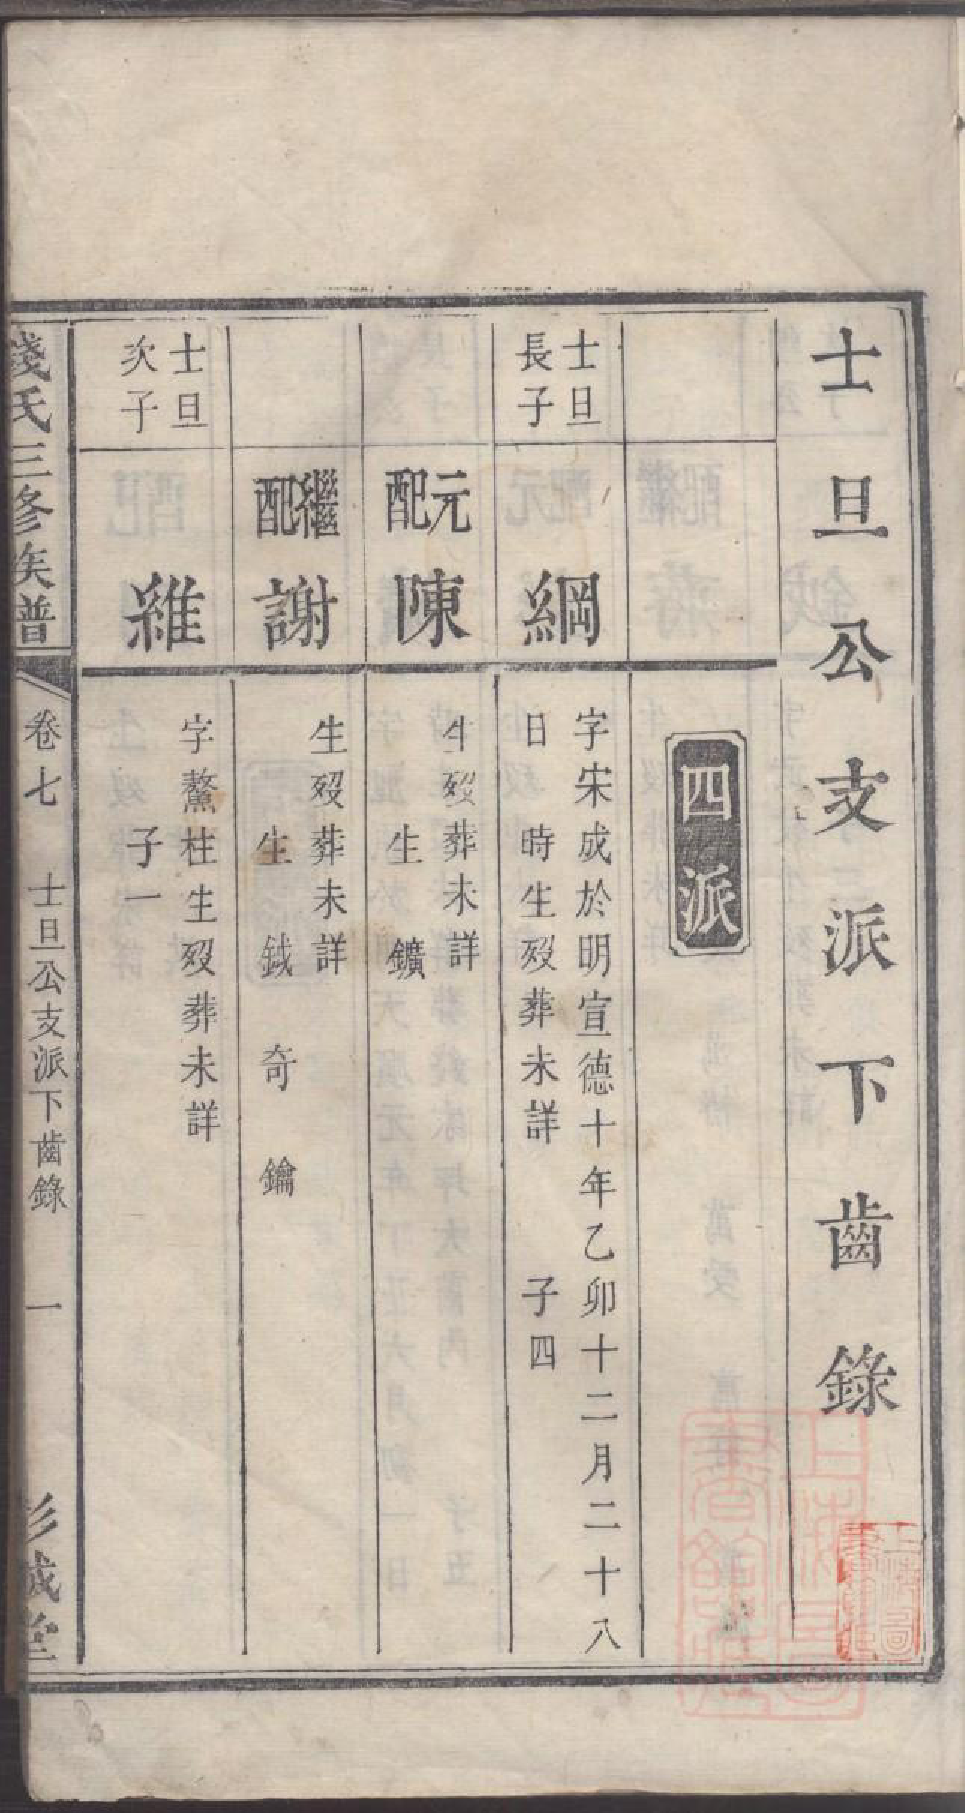 士旦公支派下齒錄
四派
士旦
長子
綱
字宋成於明宣德十年乙卯十二月二十八
日 時生歿葬未詳 子四
元配
陳
生歿葬未詳
生 鑛
繼配
謝
生歿葬未詳
生 鉞 奇 鑰
士旦
次子
維
字鰲柱生歿葬未詳
子一
錢氏三修族譜
卷七 士旦公支派下齒錄 一
彭城堂
上海圖書館藏